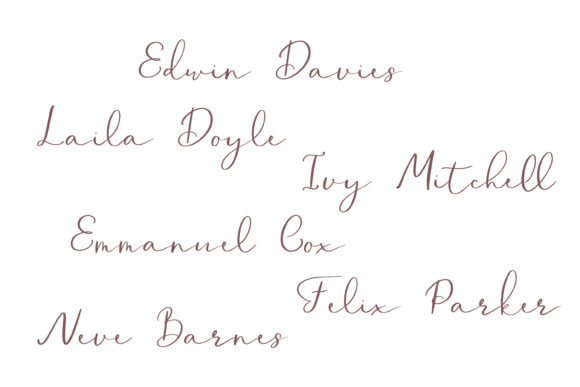 Edwin Davies
Laila Doyle
Ivy Mitchell
Emmanuel Cox
Felix Parker
Neve Barnes